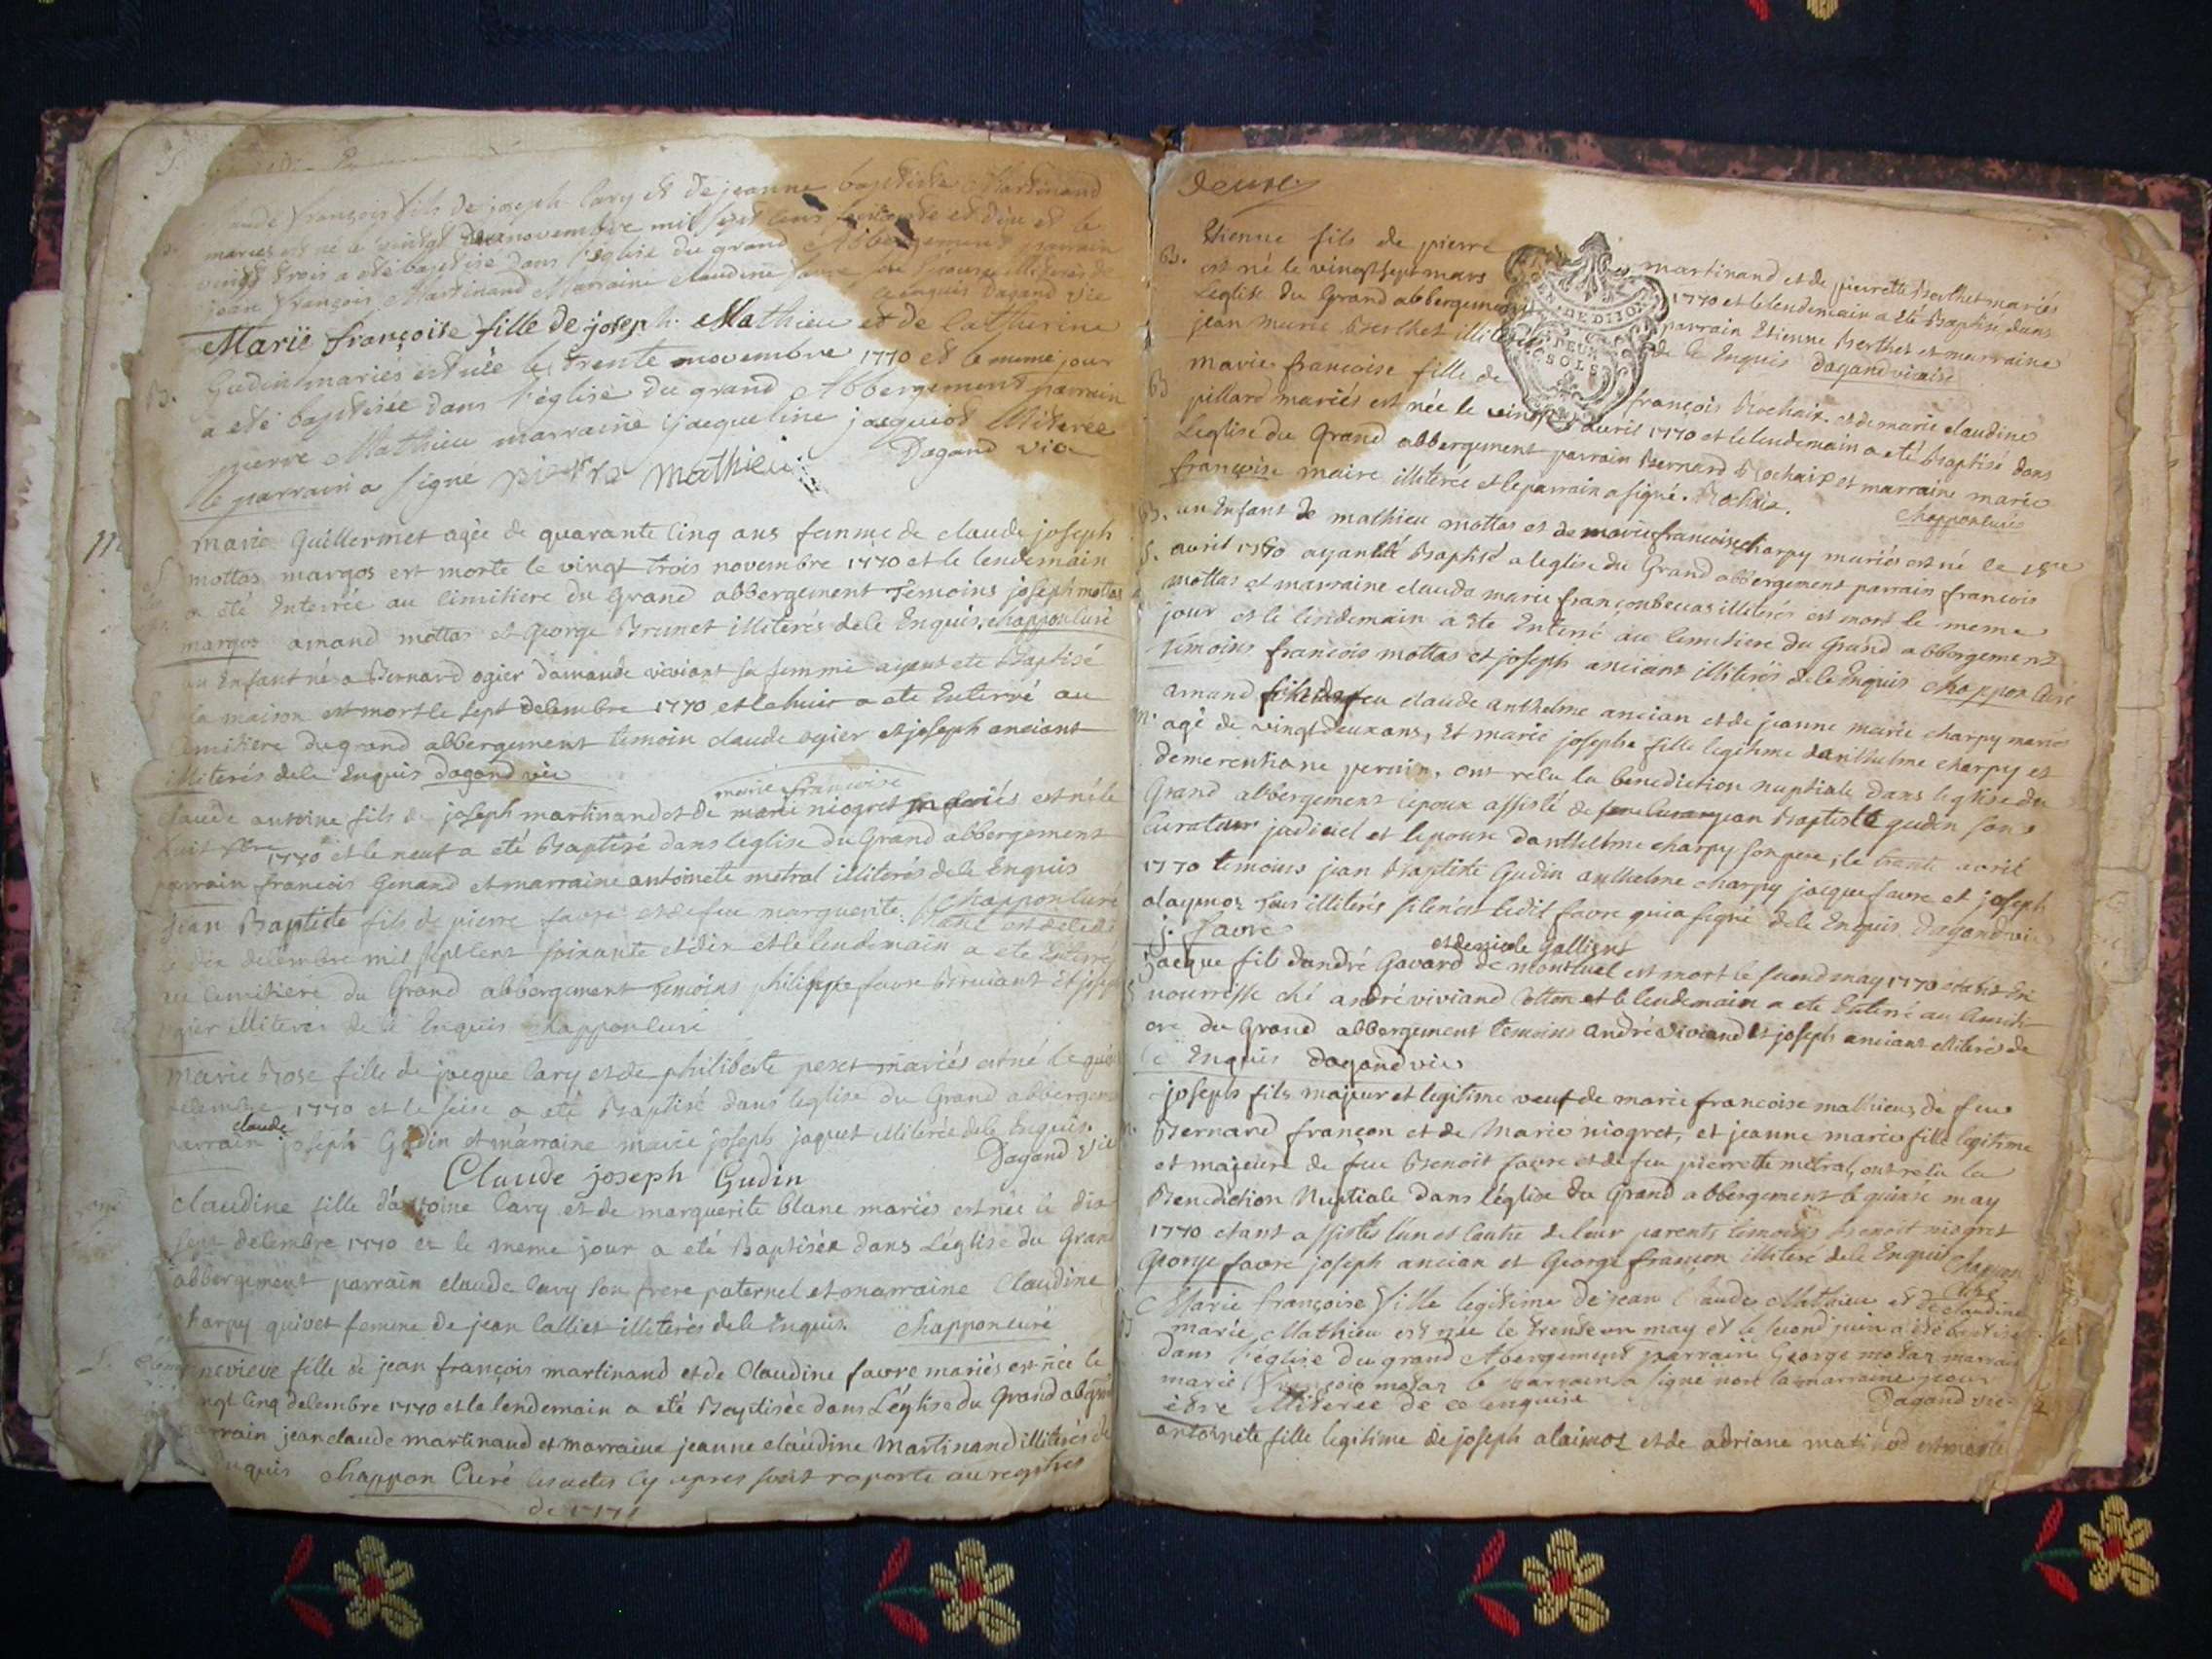 françois fils de joseph Cary et de jeanne baptiste Martinand
mariés est né le vingt novembre mil sept cens septante et dix et le
vingt trois a été baptisé dans l'église du grand Abbergement parrain
jean françois Martinand Marraine claudine
enquis Dagand vic
B. Marie françoise fille de joseph Mathieu et de Catherine
Gudin mariés est née le trente novembre 1770 et le meme jour
a eté baptisée dans l'église du grand Abbergement parrain
pierre Mathieu marraine jacqueline jacquiot illiteree
le parrain a signé pierre mathieu Dagand vic
marie Guillermet agée de quarante cinq ans femme de claude joseph
mottas margos est morte le vingt trois novembre 1770 et le lendemain
a été Enterrée au cimitiere du Grand abbergement Temoins joseph mottas
margos amand mottas et George Brunet illiterés de le Enquis. chappon curé
un Enfant né a Bernard ogier damande viviant sa femme ayant eté Baptisé
la maison est mort le sept decembre 1770 et le huit a eté Enterré au
cimitiere du grand abbergement temoin claude ogier et joseph anciant
illiterés de le Enquis dagand vic
marie francoise
claude antoine fils de joseph martinand et de marie niogret mariés est né le
huit Xbre 1770 et le neuf a eté Baptisé dans leglise du Grand abbergement
parrain francois Genand et marraine antoinete metral illiterés de le Enquis
chappon curé
jean Baptiste fils de pierre favre et de feu marguerite est decedé
le dix decembre mil sept cent soixante et dix et le lendemain a ete Enterré
au cimitiere du Grand abbergement Temoins philippe favre Bruiant et joseph
ogier illiterés de le Enquis chappon curé
marie Rose fille de jacque Cary et de philiberte peret mariés est né le quinze
decembre 1770 et le seise a eté Baptisé dans leglise du Grand abbergement
claude
parrain joseph Gudin et marraine marie joseph jaquet illiterée de le Enquis.
Claude joseph Gudin Dagand vic
claudine fille d'antoine Cary et de marguerite blanc mariés est née le dix
sept decembre 1770 et le meme jour a eté Baptisée dans L'église du Grand
abbergement parrain claude Cary son frere paternel et marraine Claudine
charpy quivet femme de jean Calliet illiterés de le Enquis. chappon curé
nevieve fille de jean françois martinand et de Claudine favre mariés est née le
vingt cinq decembre 1770 et le lendemain a eté Baptisée dans L'église du Grand aberg
parrain jean claude martinand et marraine jeanne claudine Martinand illiterés de
Enquis chappon Curé les actes cy apres sont raporté au registres
de 1771
deuxe
B. Etienne fils de pierre martinand et de pierrette Berthet mariés
est né le vingt sept mars 1770 et le lendemain a eté Baptisé dans
Leglise du Grand abbergement parrain Etienne Berthet et marraine
jean marie Berthet illiterés de le Enquis dagand vicaire
DE DIJON
DEUX
SOLS
B marie francoise fille de françois Rochaix et de marie claudine
pillard mariés est née le vingt avril 1770 et le lendemain a eté Baptisé dans
Leglise du Grand abbergement parrain Bernard Rochaix et marraine marie
françoise maire illiterée et le parrain a signé. Rochaix. chappon curé
B. un Enfant de mathieu mottas et de marie francoise charpy mariés est né le 18me
S. avril 1770 ayant eté Baptisé a leglise du Grand abbergement parrain francois
mottas et marraine clauda marie françon becuas illiterés est mort le meme
jour et le lendemain a ete Enterré au cimitiere du Grand abbergement
temoins francois mottas et joseph anciant illiterés de le Enquis chappon curé
amand fils de feu claude anthelme ancian et de jeanne marie charpy mariés
m. agé de vingt deux ans, et marie josephe fille legitime danthelme charpy et
demerentiane perrin, ont recu la benediction nuptiale dans leglise du
Grand abbergement lepoux assisté de jean Baptiste gudin son
Curateur judiciel et lepouse danthelme charpy son pere, le trente avril
1770 temoins jean Baptiste Gudin anthelme charpy jacque favre et joseph
alaymoz tous illiterés sinon ledit favre qui a signé de le Enquis Dagand vic
j. favre
et de nicole Galliens
jacque fils dandré Gavard de montluel est mort le second may 1770 étant En
nourrisse ché andré viviand Cotton et le lendemain a ete Enterré au cimiti-
ere du Grand abbergement temoins andré viviand et joseph anciant illiterés de
le Enquis dagand vic
joseph fils majeur et legitime veuf de marie francoise mathieu, de feu
m. Bernard françon et de Marie niogret, et jeanne marie fille legitime
et majeure de feu Benoit favre et de feu pierrette metral, ont recu la
Benediction Nuptiale dans léglise du Grand abbergement le quinse may
1770 etant assistés lun et lautre de leur parents temoins Benoit niogret
George favre joseph ancian et George françon illiteré de le Enquis Chappon
curé
Marie françoise fille legitime de jean Claude Mathieu et de claudine
B marie Mathieu est née le trente un may et le second juin a été baptisée
dans l'église du grand Abergement parrain George motaz marraine
marie françoise motaz le parrain a signé non la marraine pour
être illiteree de ce enquise Dagand vic
antoinete fille legitime de joseph alaimoz et de adriane matinod est morte